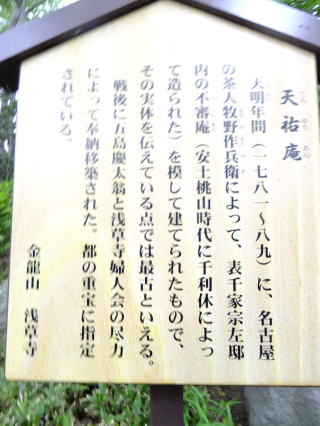 天祐庵
てん ゆう あん
天明年間（一七八一～八九）に、名古屋
の茶人牧野作兵衛によって、表千家宗左邸
内の不審庵（安土桃山時代に千利休によっ
て造られた）を模して建てられたもので、
その実体を伝えている点では最古といえる。
戦後に五島慶太翁と浅草寺婦人会の尽力
によって奉納移築された。都の重宝に指定
されている。
金龍山 浅草寺